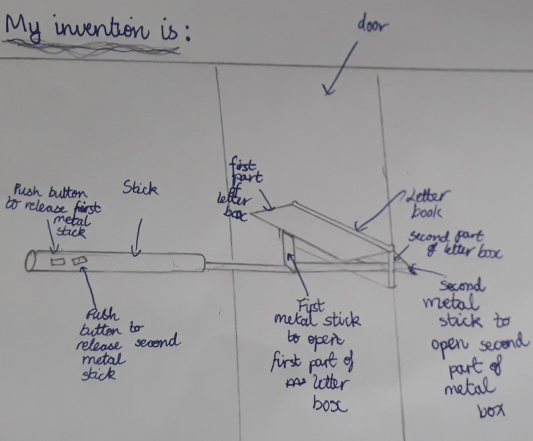 My invention is:
door
Push button
to release first
metal
stick
Stick
first
part
of
letter
box
Letter
book
second part
of letter box
Push
button to
release second
metal
stick
First
metal stick
to open
first part of
letter
box
second
metal
stick to
open second
part of
metal
box